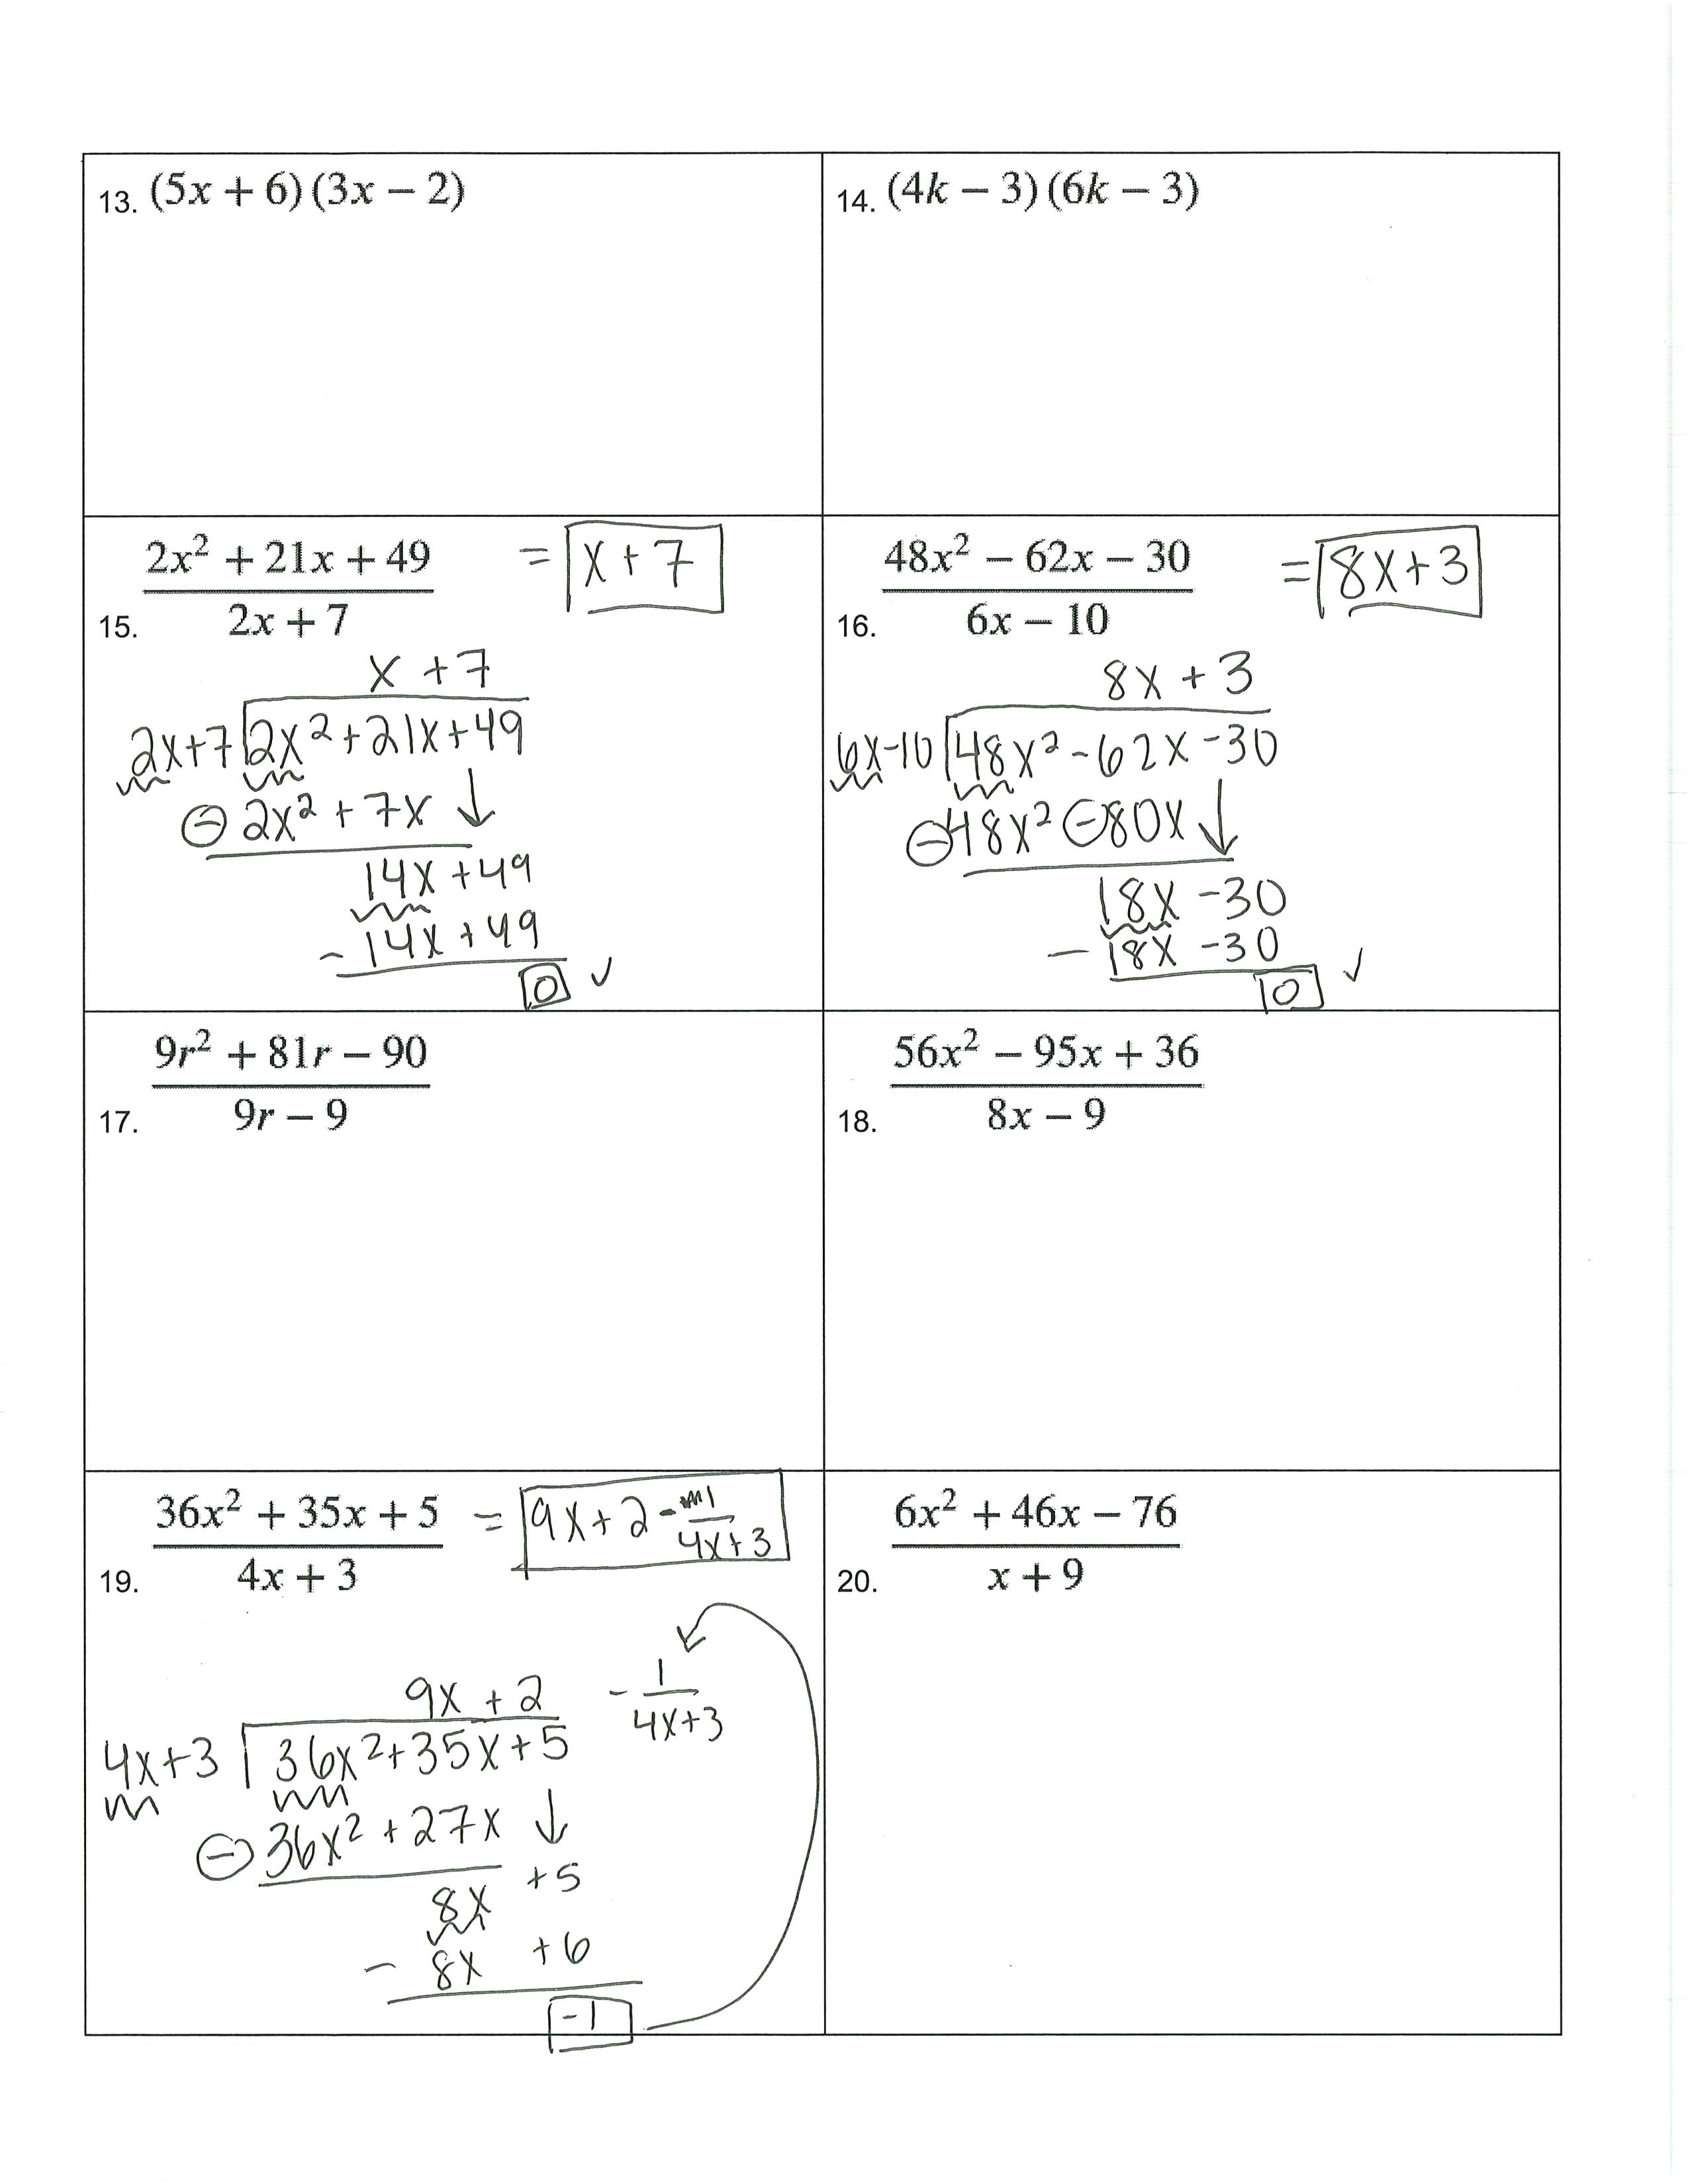 13. (5x + 6)(3x − 2)
14. (4k − 3)(6k − 3)
15. 2x² + 21x + 49 = x + 7
2x + 7
x + 7
2x+7 2x²+21x+49
⊖ 2x² + 7x ↓
14x +49
- 14x + 49
0 ✓
16. 48x² − 62x − 30 = 8x+3
6x − 10
8x + 3
6x-10 48x² -62x -30
⊖ 48x² ⊖ 80x ↓
18x -30
- 18x -30
0 ✓
17. 9r² + 81r − 90
9r − 9
18. 56x² − 95x + 36
8x − 9
19. 36x² + 35x + 5 = 9x+2 - 1
4x + 3 4x+3
9x +2 - 1
4x+3
4x+3 36x²+35x+5
⊖ 36x² + 27x ↓
8x +5
- 8x +6
-1
20. 6x² + 46x − 76
x + 9